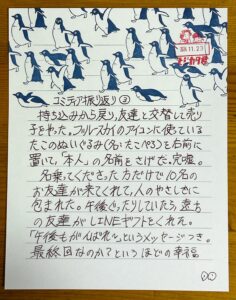 コミティア振り返り②
持ち込みから戻り、友達と交替して売り
子をやった。ブルースカイのアイコンに使っている
たこのぬいぐるみ(ぬいたこやき)を右前に
置いて、「本人」の名前をさげた。完璧。
名乗ってくださった方だけで10名の
お友達が来てくれて、人のやさしさに
包まれた。午後ぐったりしていたら、遠方
の友達がLINEギフトをくれた。
「午後もがんばれ〜」というメッセージつき。
最終回なのか?というほどの幸福